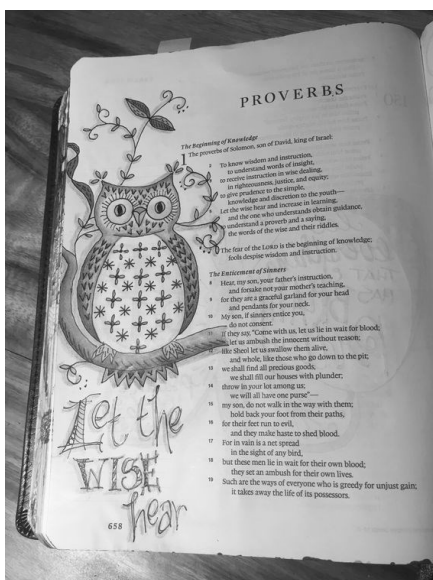 PROVERBS
The Beginning of Knowledge
1 The proverbs of Solomon, son of David, king of Israel:
2 To know wisdom and instruction,
to understand words of insight,
3 to receive instruction in wise dealing,
in righteousness, justice, and equity;
4 to give prudence to the simple,
knowledge and discretion to the youth—
5 Let the wise hear and increase in learning,
and the one who understands obtain guidance,
6 to understand a proverb and a saying,
the words of the wise and their riddles.
7 The fear of the LORD is the beginning of knowledge;
fools despise wisdom and instruction.
The Enticement of Sinners
8 Hear, my son, your father's instruction,
and forsake not your mother's teaching,
9 for they are a graceful garland for your head
and pendants for your neck.
10 My son, if sinners entice you,
do not consent.
11 If they say, "Come with us, let us lie in wait for blood;
let us ambush the innocent without reason;
12 like Sheol let us swallow them alive,
and whole, like those who go down to the pit;
13 we shall find all precious goods,
we shall fill our houses with plunder;
14 throw in your lot among us;
we will all have one purse"—
15 my son, do not walk in the way with them;
hold back your foot from their paths,
16 for their feet run to evil,
and they make haste to shed blood.
17 For in vain is a net spread
in the sight of any bird,
18 but these men lie in wait for their own blood;
they set an ambush for their own lives.
19 Such are the ways of everyone who is greedy for unjust gain;
it takes away the life of its possessors.
Let the
WISE
hear
658